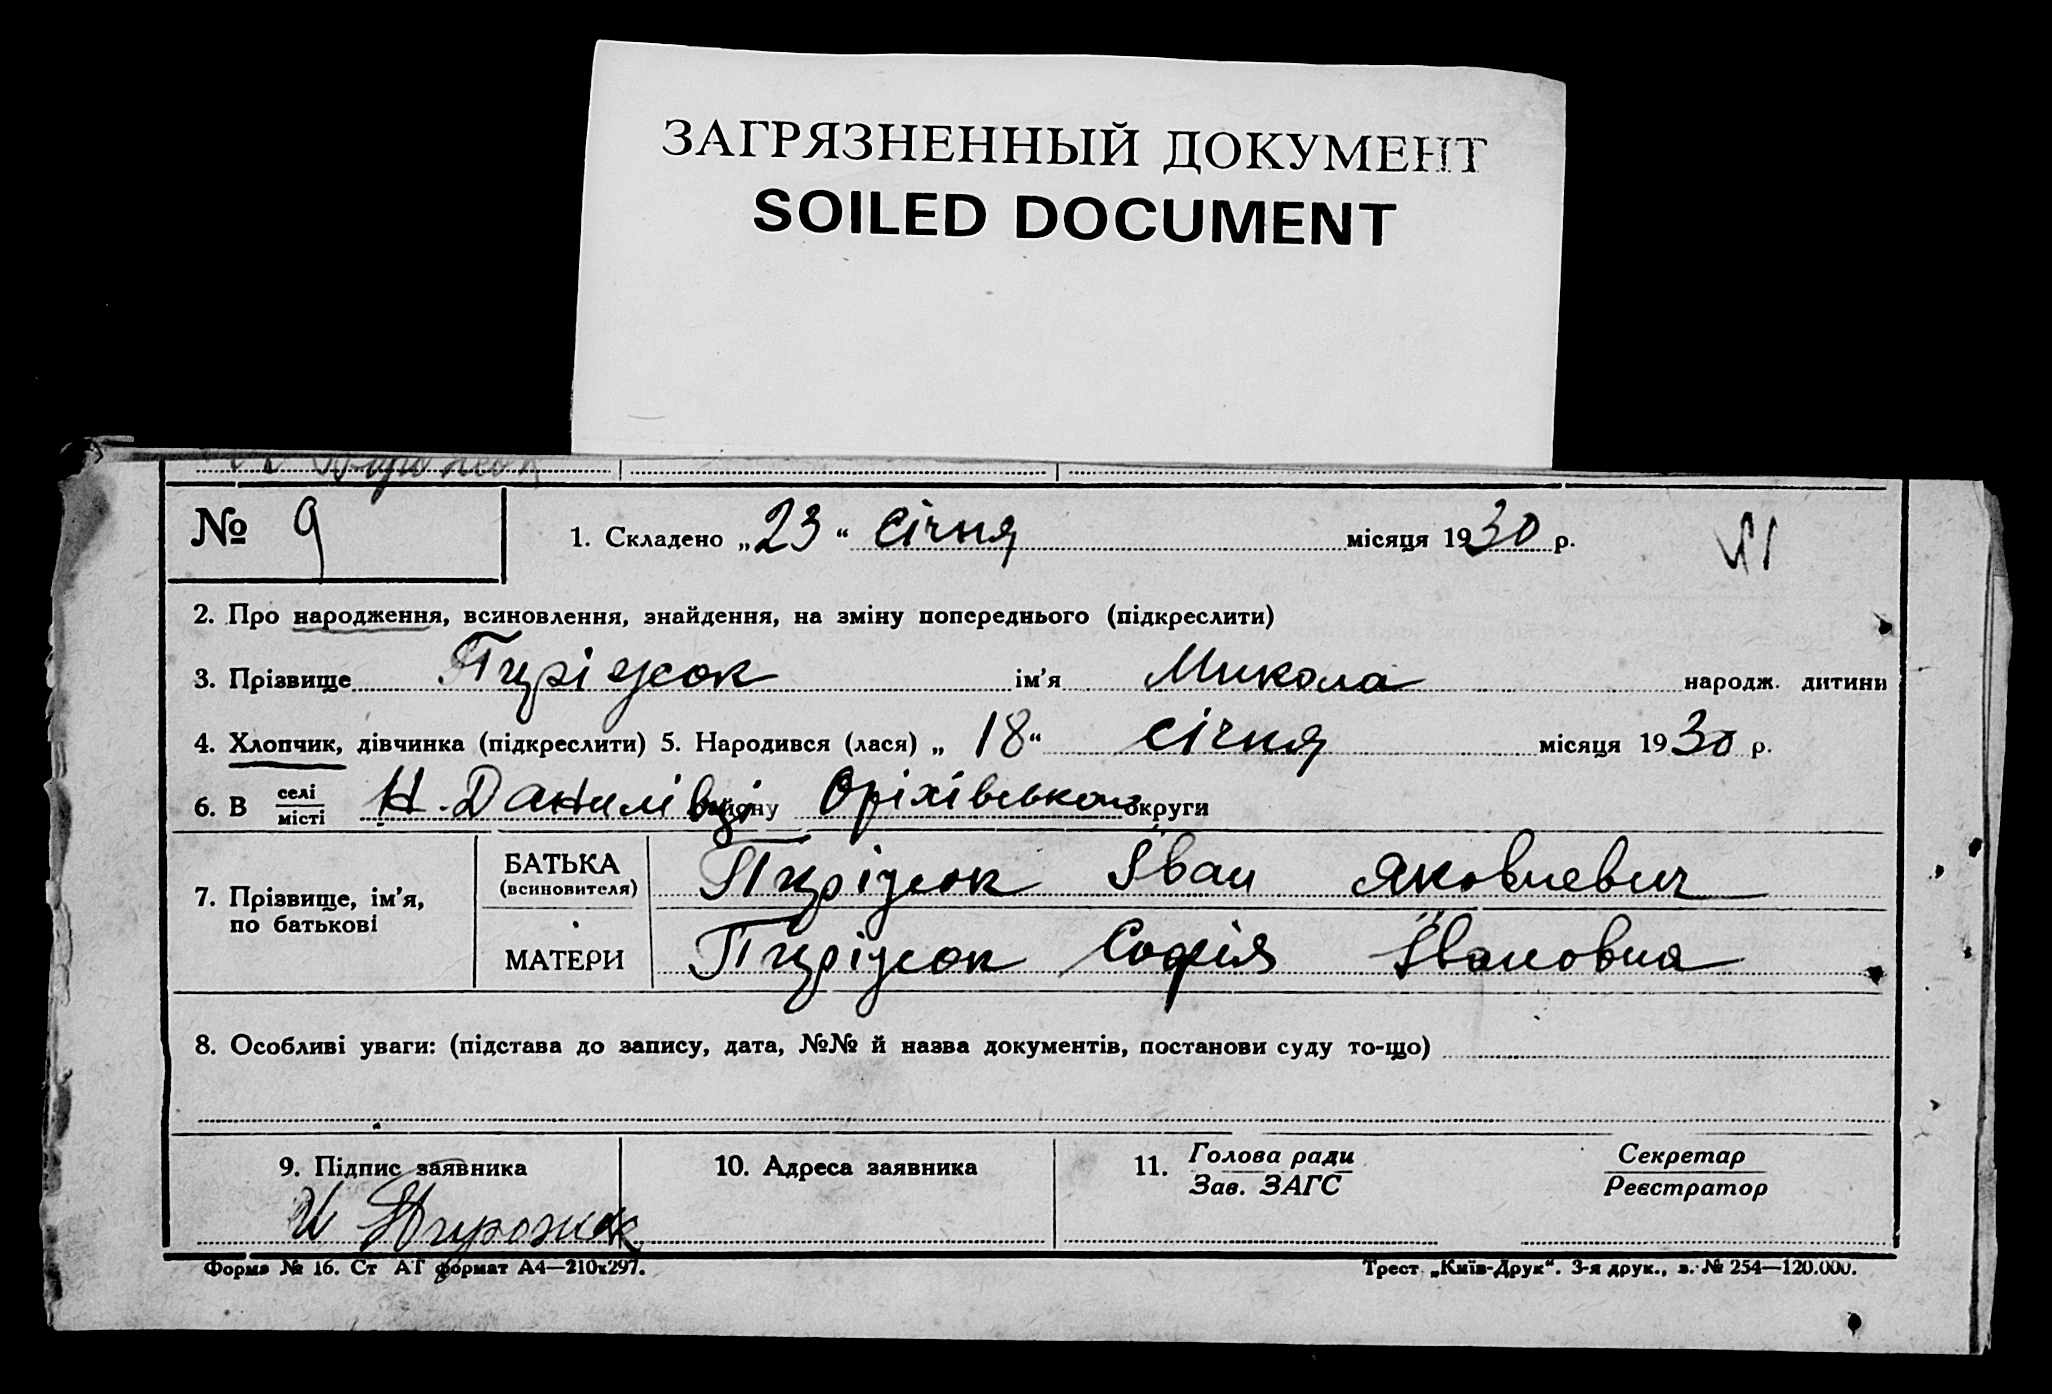 ЗАГРЯЗНЕННЫЙ ДОКУМЕНТ
SOILED DOCUMENT
№ 9
1. Складено „23“ січня місяця 1930 р.
2. Про народження, всиновлення, знайдення, на зміну попереднього (підкреслити)
3. Прізвище Пиріжок ім'я Микола народж. дитини
4. Хлопчик, дівчинка (підкреслити) 5. Народився (лася) „18“ січня місяця 1930 р.
6. В селі
місті Н. Данилівці району Оріхівської округи
7. Прізвище, ім'я, по батькові
БАТЬКА (всиновителя) Пиріжок Іван Яковлевич
МАТЕРИ Пиріжок Софія Івановна
8. Особливі уваги: (підстава до запису, дата, №№ й назва документів, постанови суду то-що)
9. Підпис заявника
10. Адреса заявника
11. Голова ради
Зав. ЗАГС
Секретар
Реєстратор
И Пирожок
Форма № 16. Ст АТ формат А4—210х297.
Трест „Київ-Друк“. 3-я друк., з. № 254—120.000.